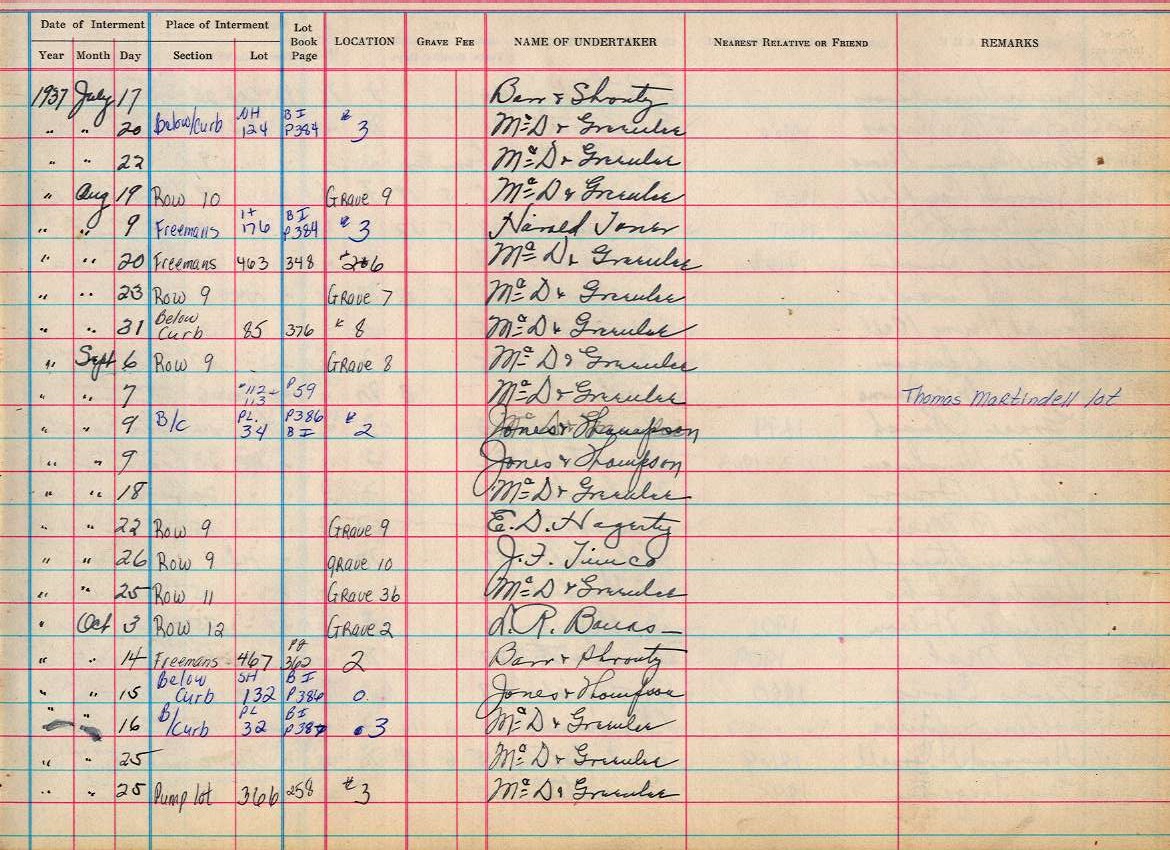 Date of Interment Place of Interment Lot Book Page LOCATION GRAVE FEE NAME OF UNDERTAKER NEAREST RELATIVE OR FRIEND REMARKS
Year Month Day Section Lot
1937 July 17 Barr & Shrouty
" " 20 Below/Curb SH 124 B I P384 # 3 McD & Greenlee
" " 22 McD & Greenlee
" Aug 19 Row 10 Grave 9 McD & Greenlee
" " 9 Freemans 176 B I P384 # 3 Harold Jones
" " 20 Freemans 463 348 McD & Greenlee
" " 23 Row 9 Grave 7 McD & Greenlee
" " 31 Below Curb 85 376 # 8 McD & Greenlee
" Sept 6 Row 9 Grave 8 McD & Greenlee
" " 7 #112- 113 P 59 McD & Greenlee Thomas Martindell lot
" " 9 B/c PL. 34 P386 B I # 2 Jones & Thompson
" " 9 Jones & Thompson
" " 18 McD & Greenlee
" " 22 Row 9 Grave 9 E. D. Hagerty
" " 26 Row 9 grave 10 J. F.
" " 25 Row 11 Grave 36 McD & Greenlee
" Oct 3 Row 12 Grave 2 R.
" " 14 Freemans - 467 Pg 362 2 Barr & Shrouty
" " 15 Below Curb SH 132 B I P386 0. Jones & Thompson
" " 16 B/Curb PL 32 B I P387 3 McD & Greenlee
" " 25 McD & Greenlee
" " 25 Pump lot 366 258 # 3 McD & Greenlee